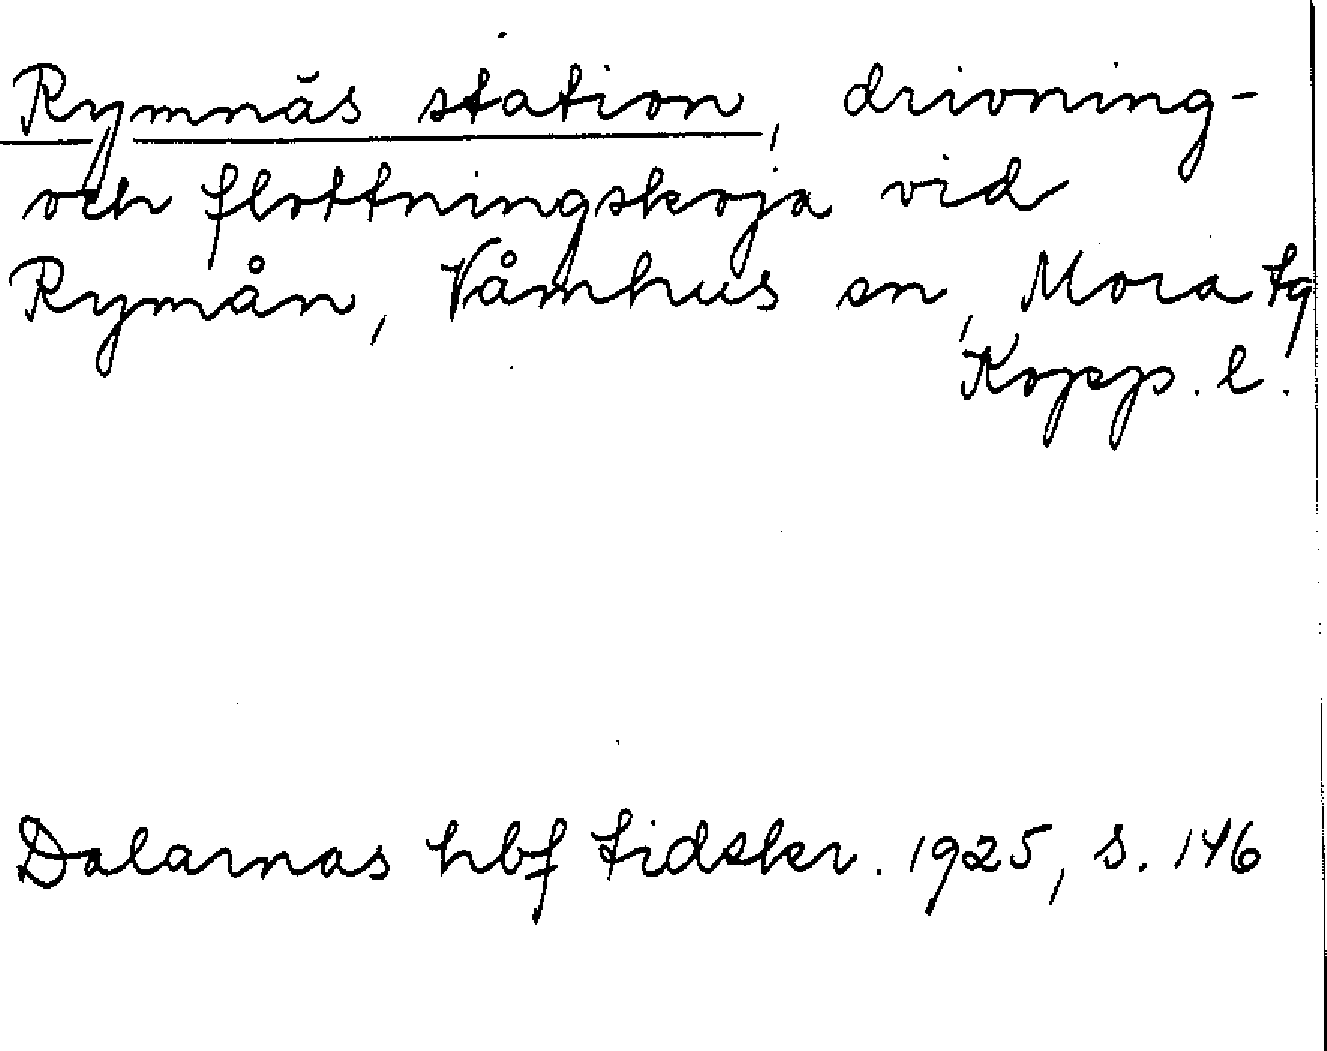 Rymnäs station, drivning-
och flottningskoja vid
Rymån, Våmhus sn, Mora tg
Kopp. l.
Dalarnas hbf tidskr. 1925, s. 146